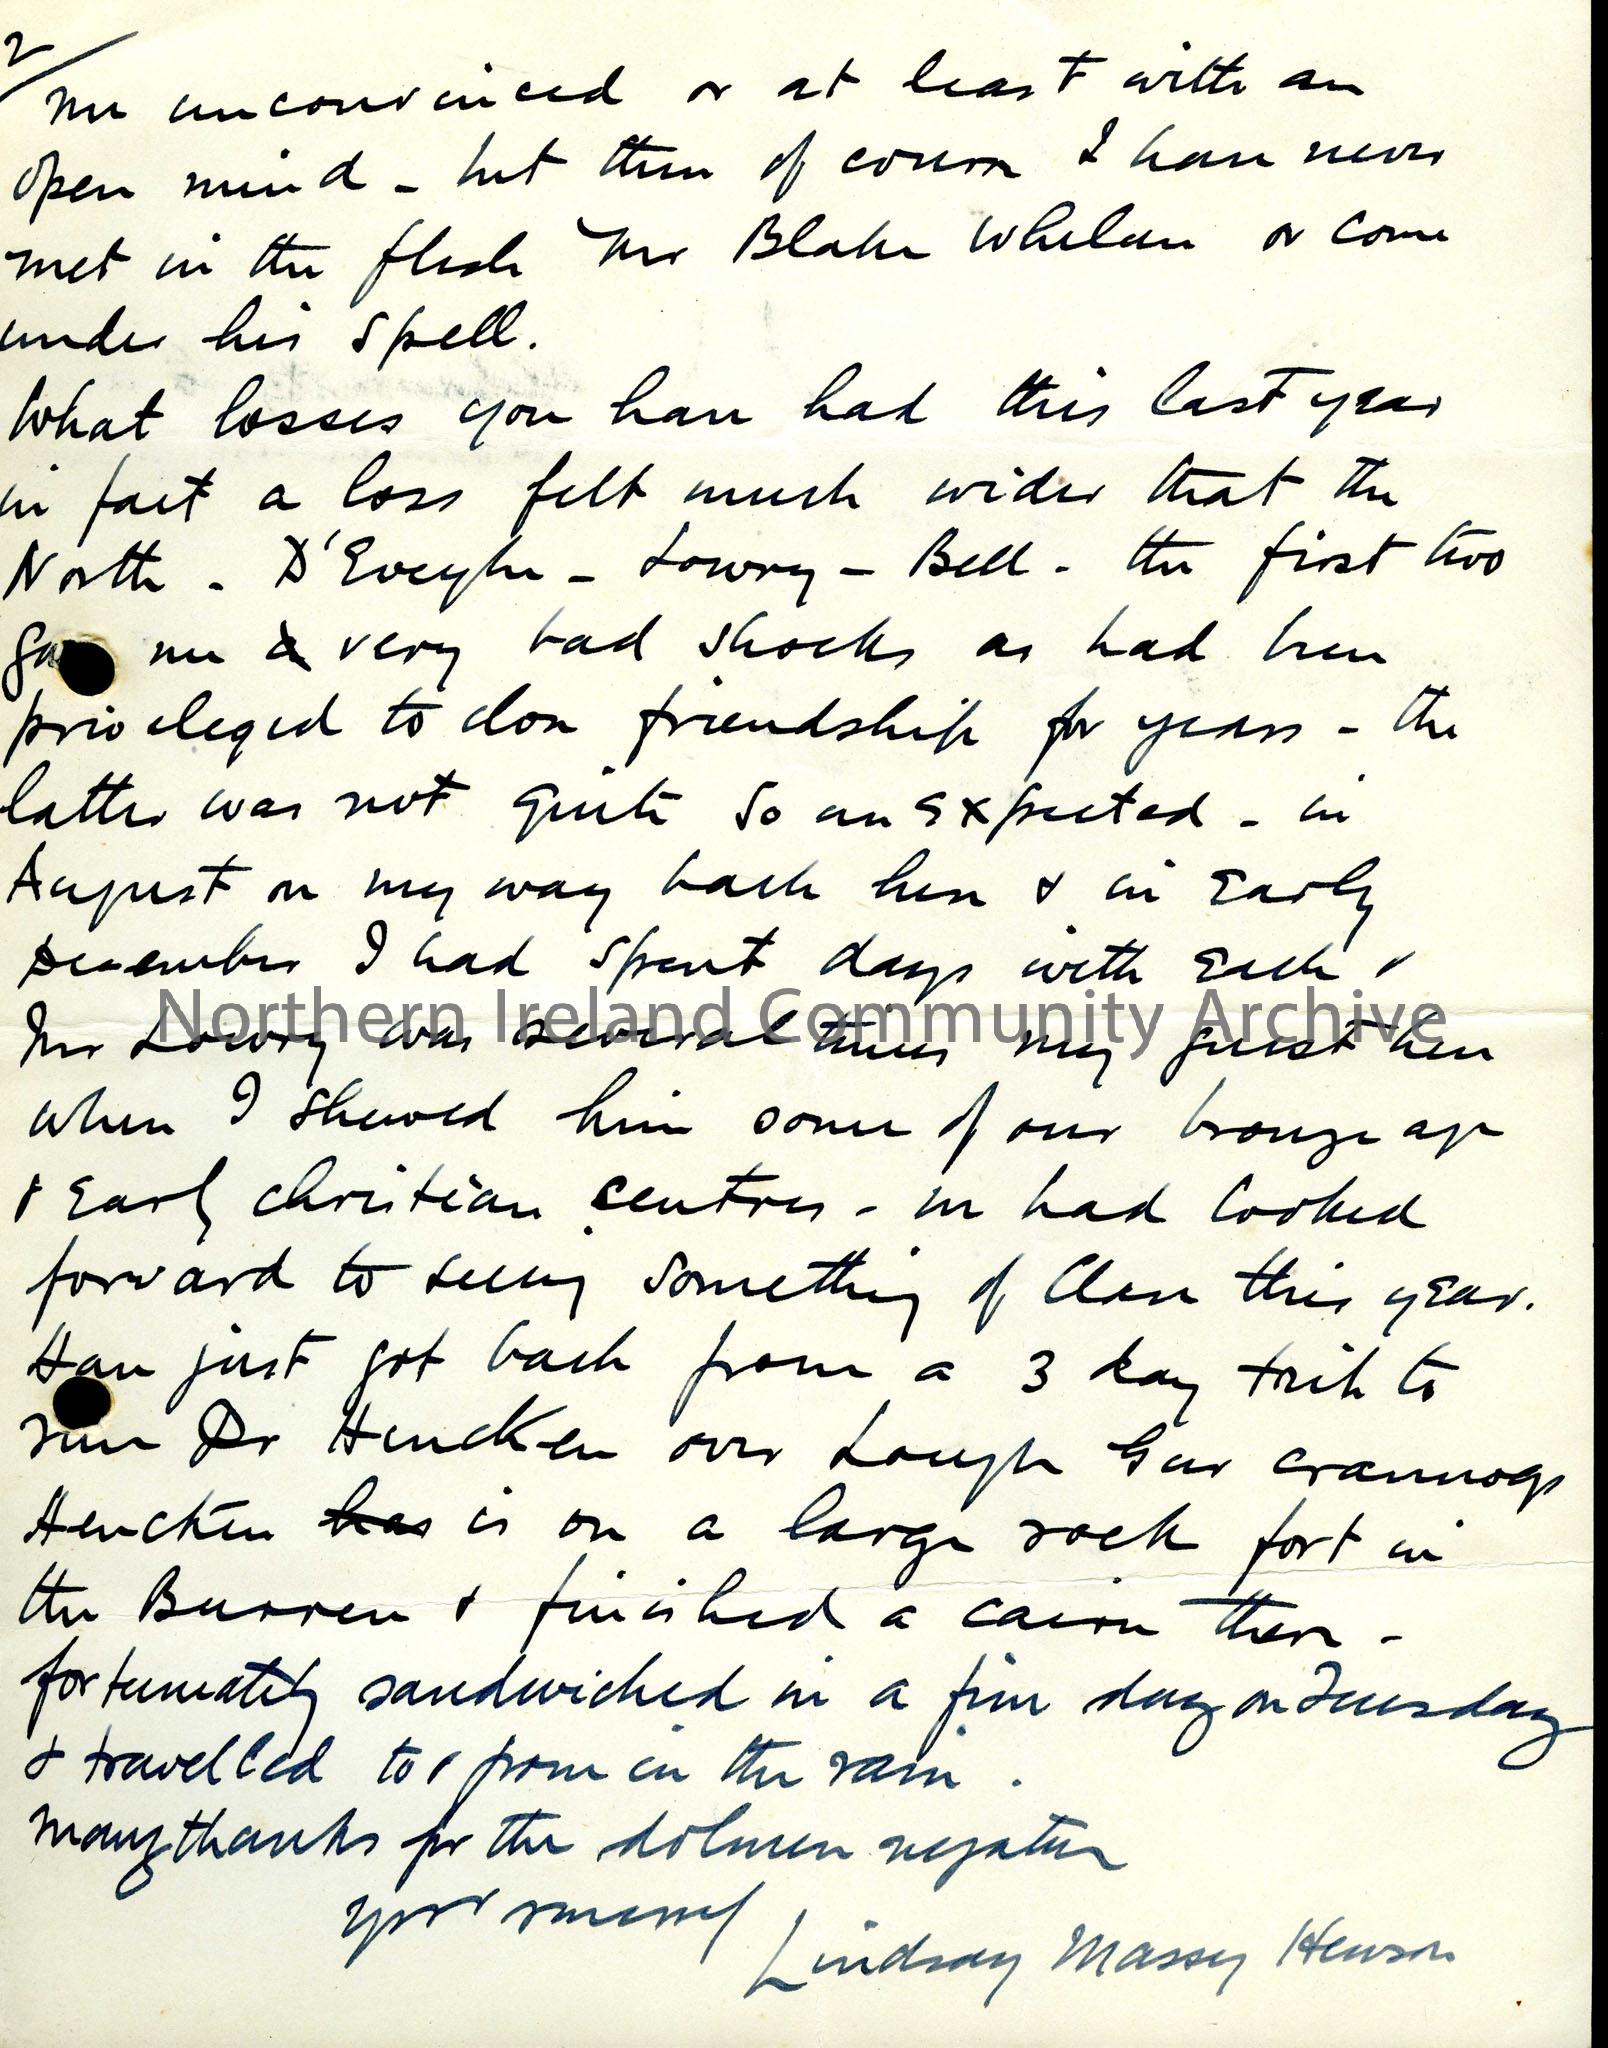 2/
me unconvinced or at least with an
open mind - but then of course I have never
met in the flesh Mr Blake Whelan or come
under his spell.
What losses you have had this last year
in fact a loss felt much wider that the
North - D'Evelyn - Lowry - Bell - the first two
gave me very bad shocks as had been
privileged to close friendship for years - the
latter was not quite so unexpected - in
August on my way back here & in Early
December I had spent days with Each &
Mr Lowry was several times my guest here
when I shewed him some of our bronze age
& Early christian centres - we had looked
forward to seeing something of Clare this year.
Have just got back from a 3 day trip to
run Dr Hencken over Lough Gur crannogs
Hencken has is on a large rock fort in
the Burren & finished a cairn there -
fortunately sandwiched in a fine day on Tuesday
& travelled to & from in the rain.
Many thanks for the dolmen negative
yrs sincerely
Lindsay Massey Hewson
Northern Ireland Community Archive